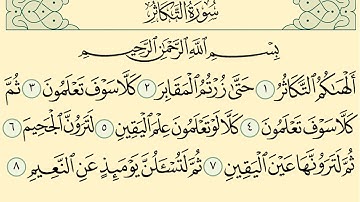 سُورَةُ التَّكَاثُرِ
بِسْمِ اللَّهِ الرَّحْمَٰنِ الرَّحِيمِ
أَلْهَاكُمُ التَّكَاثُرُ ١ حَتَّىٰ زُرْتُمُ الْمَقَابِرَ ٢ كَلَّا سَوْفَ تَعْلَمُونَ ٣ ثُمَّ
كَلَّا سَوْفَ تَعْلَمُونَ ٤ كَلَّا لَوْ تَعْلَمُونَ عِلْمَ الْيَقِينِ ٥ لَتَرَوُنَّ الْجَحِيمَ ٦
ثُمَّ لَتَرَوُنَّهَا عَيْنَ الْيَقِينِ ٧ ثُمَّ لَتُسْـَٔلُنَّ يَوْمَئِذٍ عَنِ النَّعِيمِ ٨